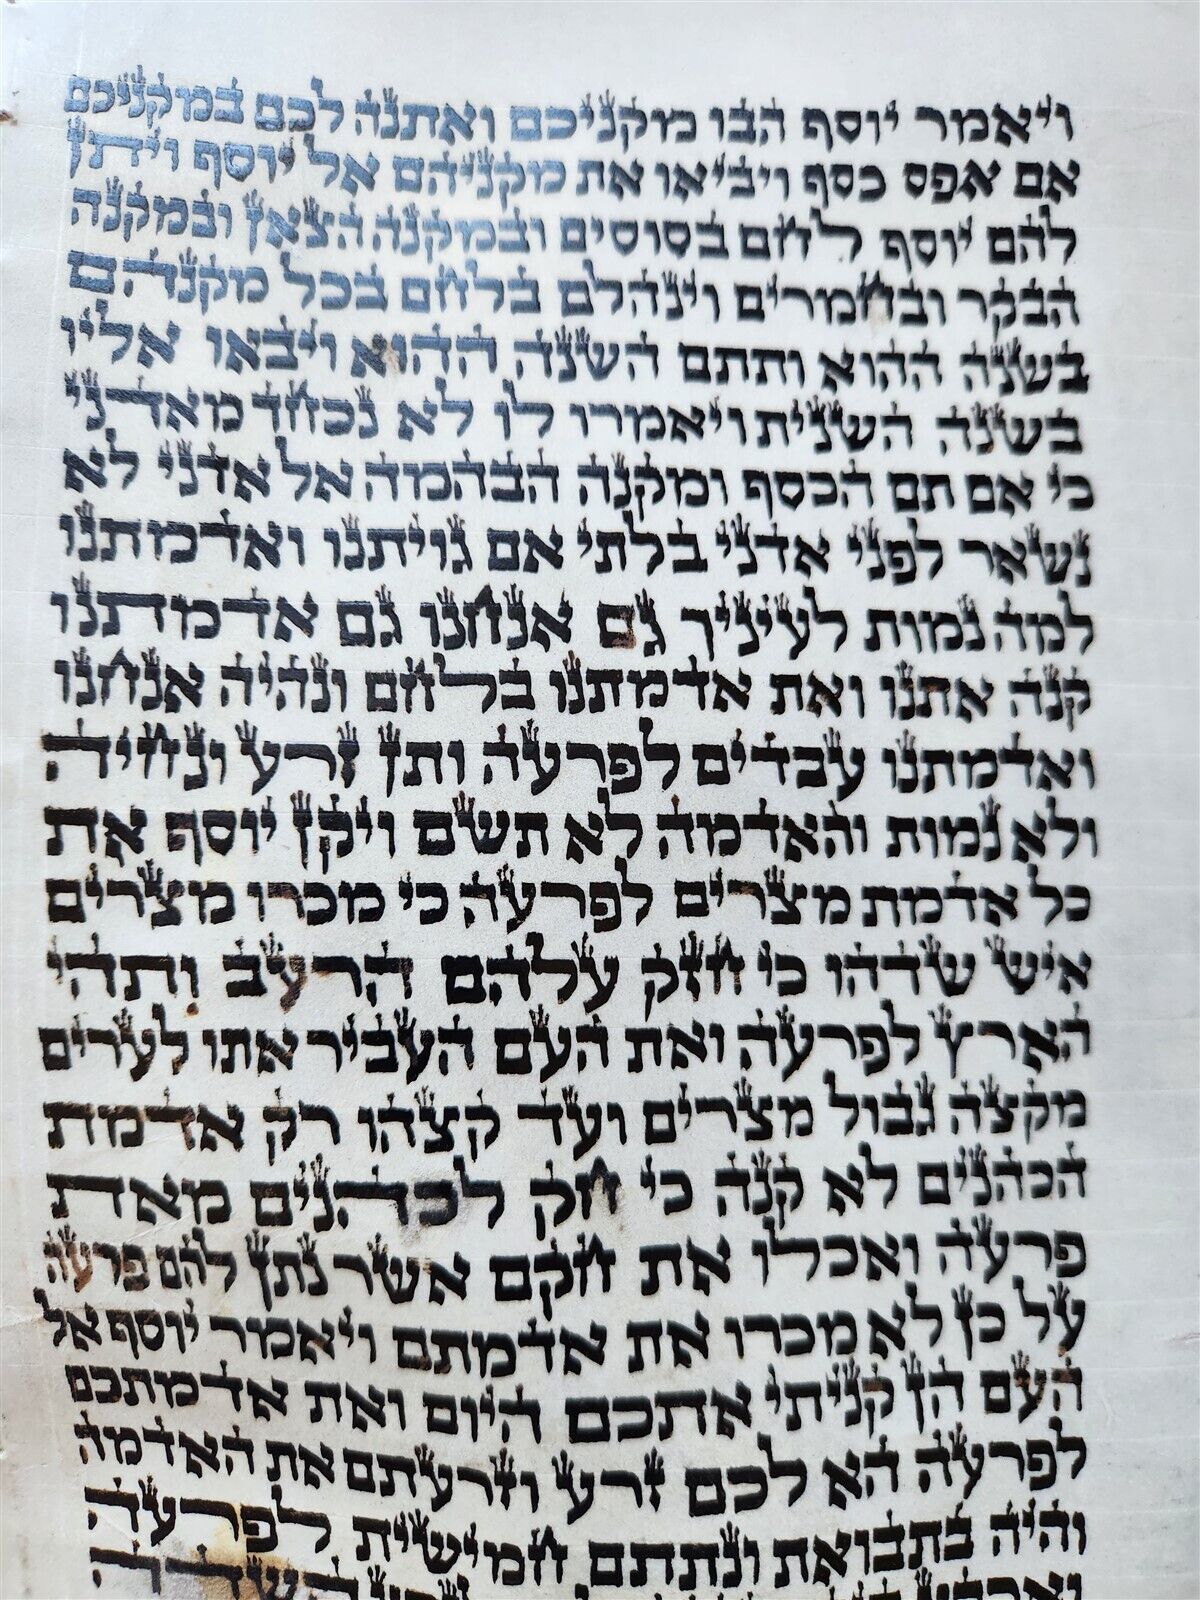 ויאמר יוסף הבו מקניכם ואתנה לכם במקניכם
אם אפס כסף ויביאו את מקניהם אל יוסף ויתן
להם יוסף לחם בסוסים ובמקנה הצאן ובמקנה
הבקר ובחמרים וינהלם בלחם בכל מקנהם
בשנה ההוא ותתם השנה ההוא ויבאו אליו
בשנה השנית ויאמרו לו לא נכחד מאדני
כי אם תם הכסף ומקנה הבהמה אל אדני לא
נשאר לפני אדני בלתי אם גויתנו ואדמתנו
למה נמות לעיניך גם אנחנו גם אדמתנו
קנה אתנו ואת אדמתנו בלחם ונהיה אנחנו
ואדמתנו עבדים לפרעה ותן זרע ונחיה
ולא נמות והאדמה לא תשם ויקן יוסף את
כל אדמת מצרים לפרעה כי מכרו מצרים
איש שדהו כי חזק עלהם הרעב ותהי
הארץ לפרעה ואת העם העביר אתו לערים
מקצה גבול מצרים ועד קצהו רק אדמת
הכהנים לא קנה כי חק לכהנים מאת
פרעה ואכלו את חקם אשר נתן להם פרעה
על כן לא מכרו את אדמתם ויאמר יוסף אל
העם הן קניתי אתכם היום ואת אדמתכם
לפרעה הא לכם זרע וזרעתם את האדמה
והיה בתבואת ונתתם חמישית לפרעה